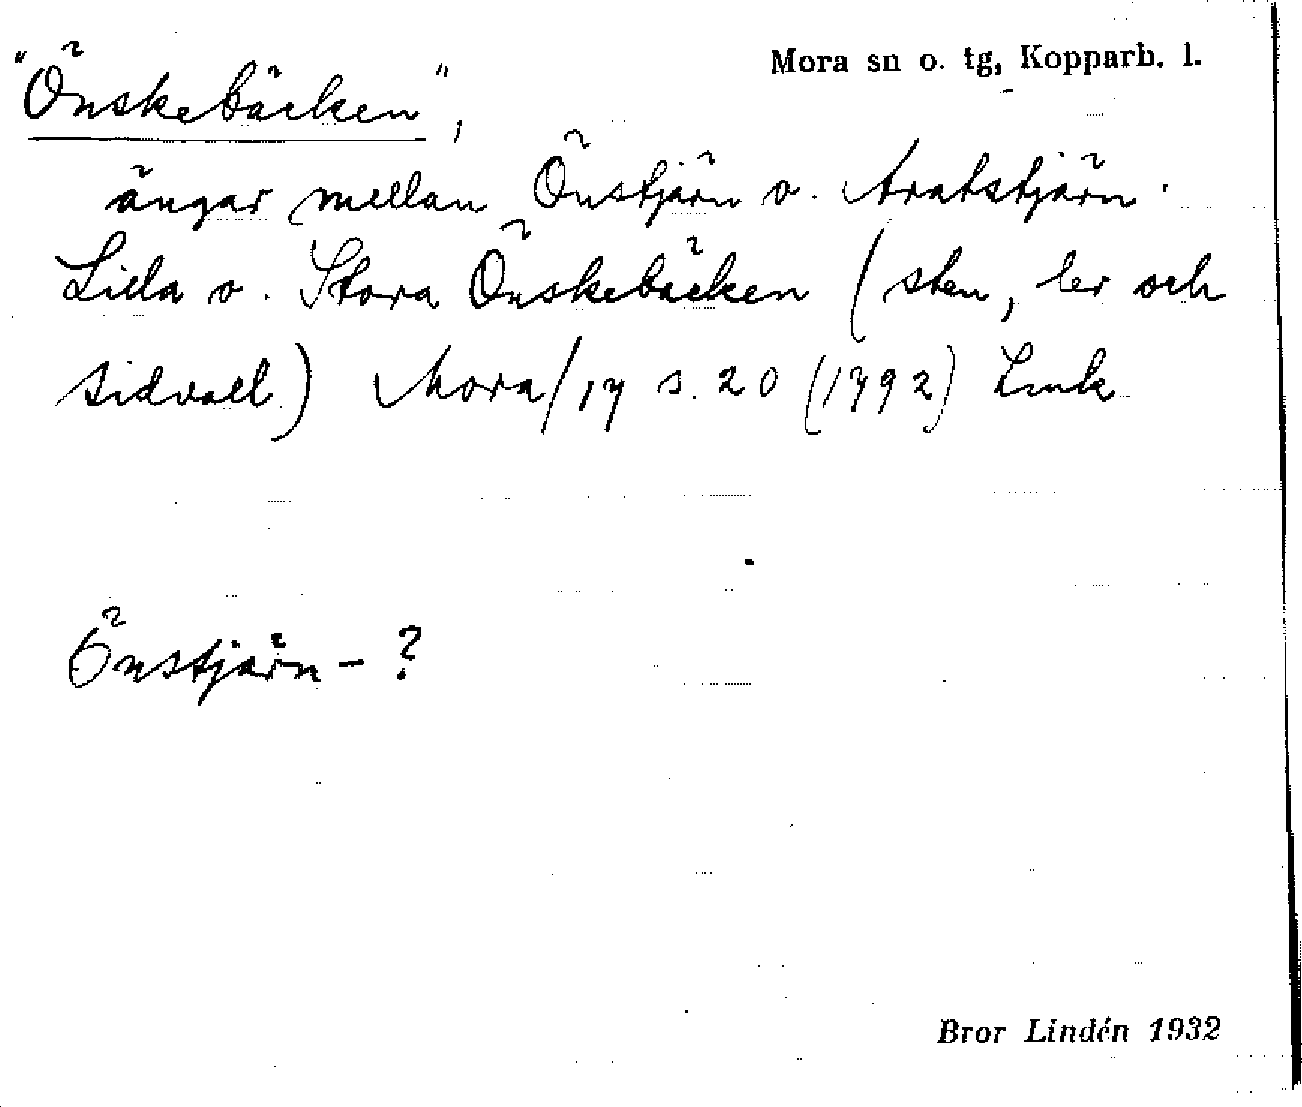 Mora sn o. tg, Kopparb. l.
"Önskebäcken",
ängar mellan Önstjärn o. Aratstjärn.
Lilla o. Stora Önskebäcken (sten, ler och
sidvall) Mora/17 s. 20 (1792) Lmk
Önstjärn - ?
Bror Lindén 1932